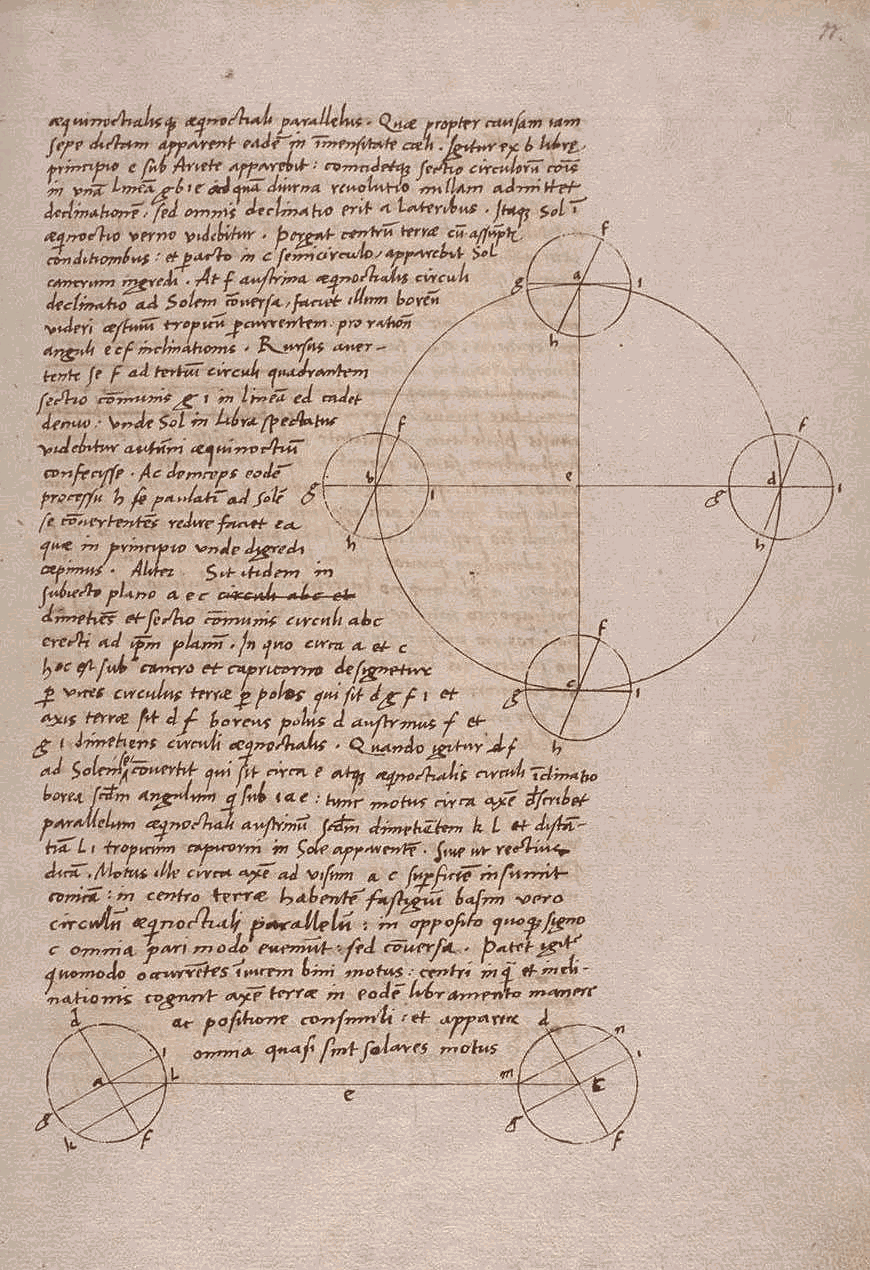 11.
æquinoctialisq₃ æq̄noctiali parallelus. Quæ propter causam iam
sepe dictam apparent eadē in īmensitate cæli. Igitur ex b libre
principio e sub Ariete apparebit: coincidetq₃ sectio circulorū cōis
in unā lineā g b i e ad quā diurna reuolutio nullam admittet
declinationē, sed omnis declinatio erit a lateribus. Itaq₃ Sol ī
æq̄noctio uerno uidebitur. Pergat centrū terræ cū assūptis
conditionibus: et pacto in c semicirculo, apparebit Sol
cancrum ingredi. At f austrina æq̄noctialis circuli
declinatio ad Solem cōuersa, faciet illum boreū
uideri æstiuū tropicū p̄currentem pro ration̄
anguli e c f inclinationis. Rursus auer-
tente se f ad tertiū circuli quadrantem
sectio cōmunis g i in lineā ed cadet
denuo: unde Sol in libra spectatus
uidebitur autūni æquinoctiū
confecisse. Ac deinceps eodē
processu h f se paulatī ad Solē
se cōuertentēs redire faciet ea
quæ in principio unde digredi
cœpimus. Aliter Sit itidem in
subiecto plano a e c circuli abc et
dimetiēs et sectio cōmunis circuli abc
erecti ad ip̄m planū. In quo circa a et c
hoc est sub cancro et capricorno designetur
p̄ uices circulus terræ p̄ polos qui sit d g f i et
axis terræ sit d f boreus polus d austrinus f et
g i dimetiens circuli æq̄noctialis. Quando igitur d f
ad Solem se cōuertit qui sit circa e atq₃ æq̄noctialis circuli īclinatio
borea scd̄m angulum q̄ sub i a e: tunc motus circa axē d̄scribet
parallelum æq̄noctiali austrinū scd̄m dimetiētem k l et distā-
tiā l i tropicum capricorni in Sole apparentē. Siue ut rectius
dicā. Motus ille circa axē ad uisum a e sup̄ficiē insumit
conicā: in centro terræ habentē fastigiū basim uero
circulū æq̄noctiali parallelū: in opposito quoq₃ signo
c omnia pari modo eueniūt: sed cōuersa. Patet igit̄
quomodo occurrētes īuicem bini motus: centri inq̄ et incli-
nationis cogunt axē terræ in eodē libramento manere
ac positione consimili: et apparere
omnia quasi sint solares motus
f
g a i
h
f
g b i
h
e
f
g d i
h
f
g c i
h
d
a i
l
g
k f
e
d
n
i
m
c
g
f